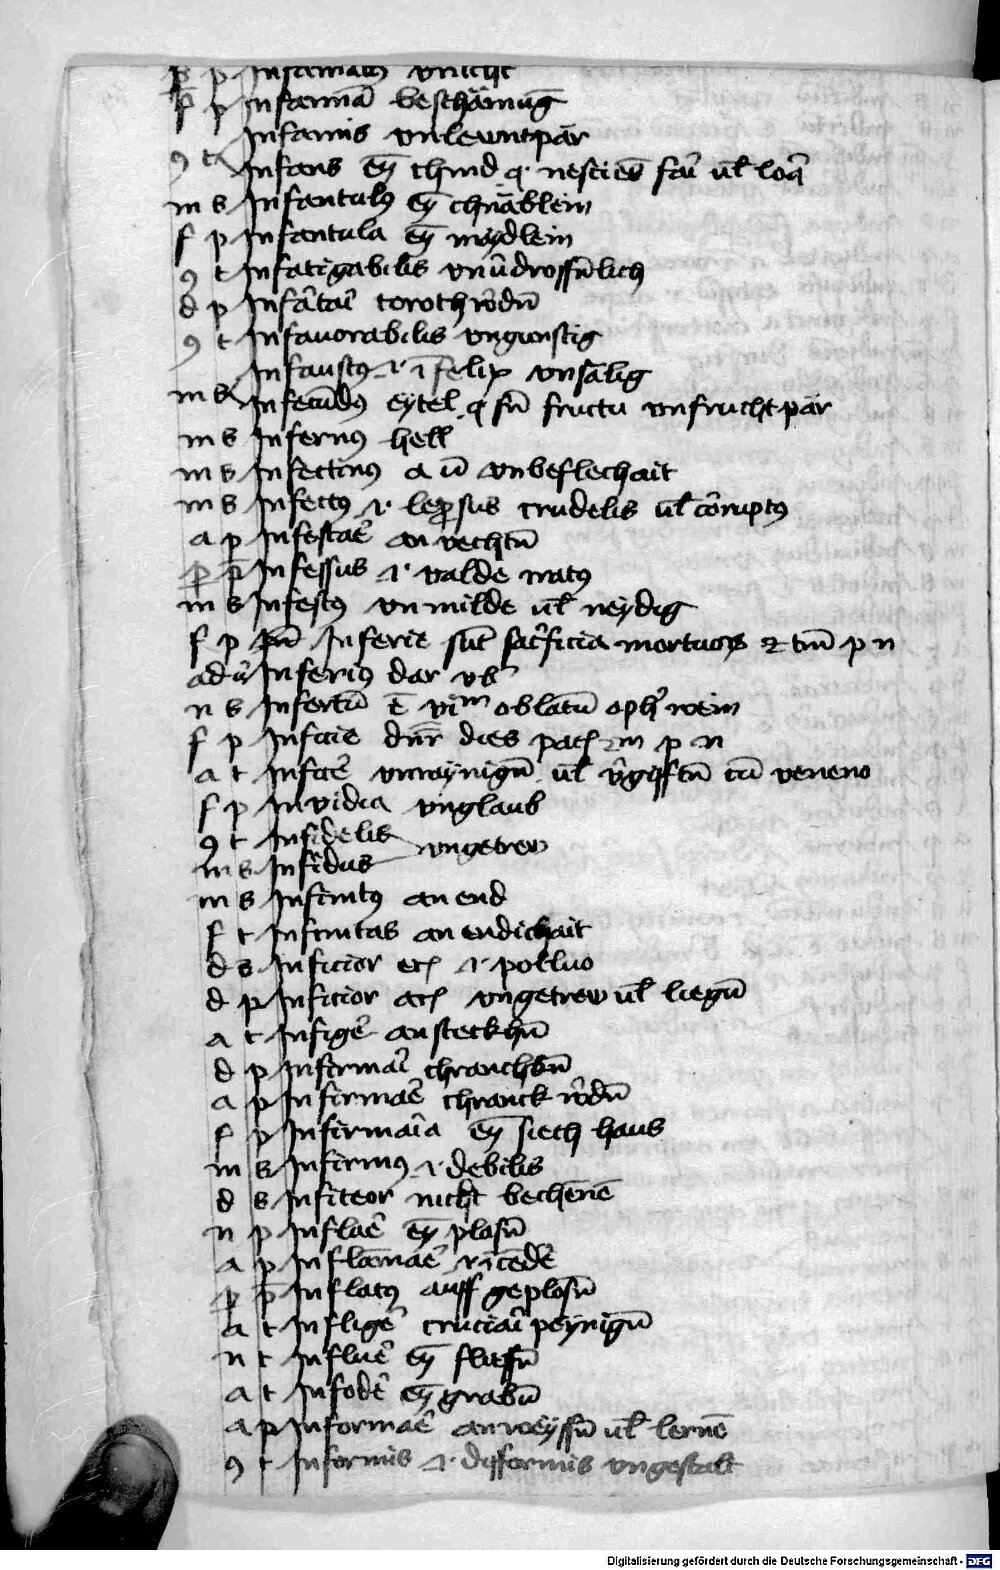 p p Infamatus
p p Infamiā beschämūg
Infamis vnlewntpär
9 t Infans eȳ chind q nesciēs fari ul loq
m s Infantulus eȳ chnäblein
f p Infantula eȳ maydlein
9 t Infatigabilis vnu̇drossn̄lich
d p Infatari toroth
9 t Infauorabilis vngunstig
Infaustus .i. infelix vnsälig
m s Infecūdus eytel q sn̄ fructu vnfruchtpär
m s Infernus hell
m s Infectinus a ū vnbeflechait
m s Infectus .i. leprosus crudelis ul corruptus
a p Infestare an vechtn̄
p p Infessus .i. valde
m s Infestus vnmilde ul neydig
f p Inferie sūt sacrificia mortuorum p n
adu Inferius dar
n s Infertū oblatū wein
f p Inferie dies m p n
a t cū veneno
f p Invidia vnglaub
9 t Infidelis
m s Infidus vngetrew
m s Infinitus an end
f t Infinitas an endichait
d s Inficior .i. polluo
d p Inficior vngetrew ul liegn̄
a t Infigere an steckhn̄
d p Infirmari
a p Infirmare chranck
f p Infirmaria eȳ siech haus
m s Infirmus .i. debilis
d s Infiteor nicht bechēnē
n p Inflare eȳ plasn̄
a p Inflāmare .i. incēdere
p p Inflatus auff geplosn̄
a t Infligere cruciari peynign̄
n t Influere eȳ fliessn̄
a t Infodere eȳ grabn̄
a p Informare an weyssn̄ ul lernē
9 t Informis .i. difformis vngestalt
Digitalisierung gefördert durch die Deutsche Forschungsgemeinschaft - DFG